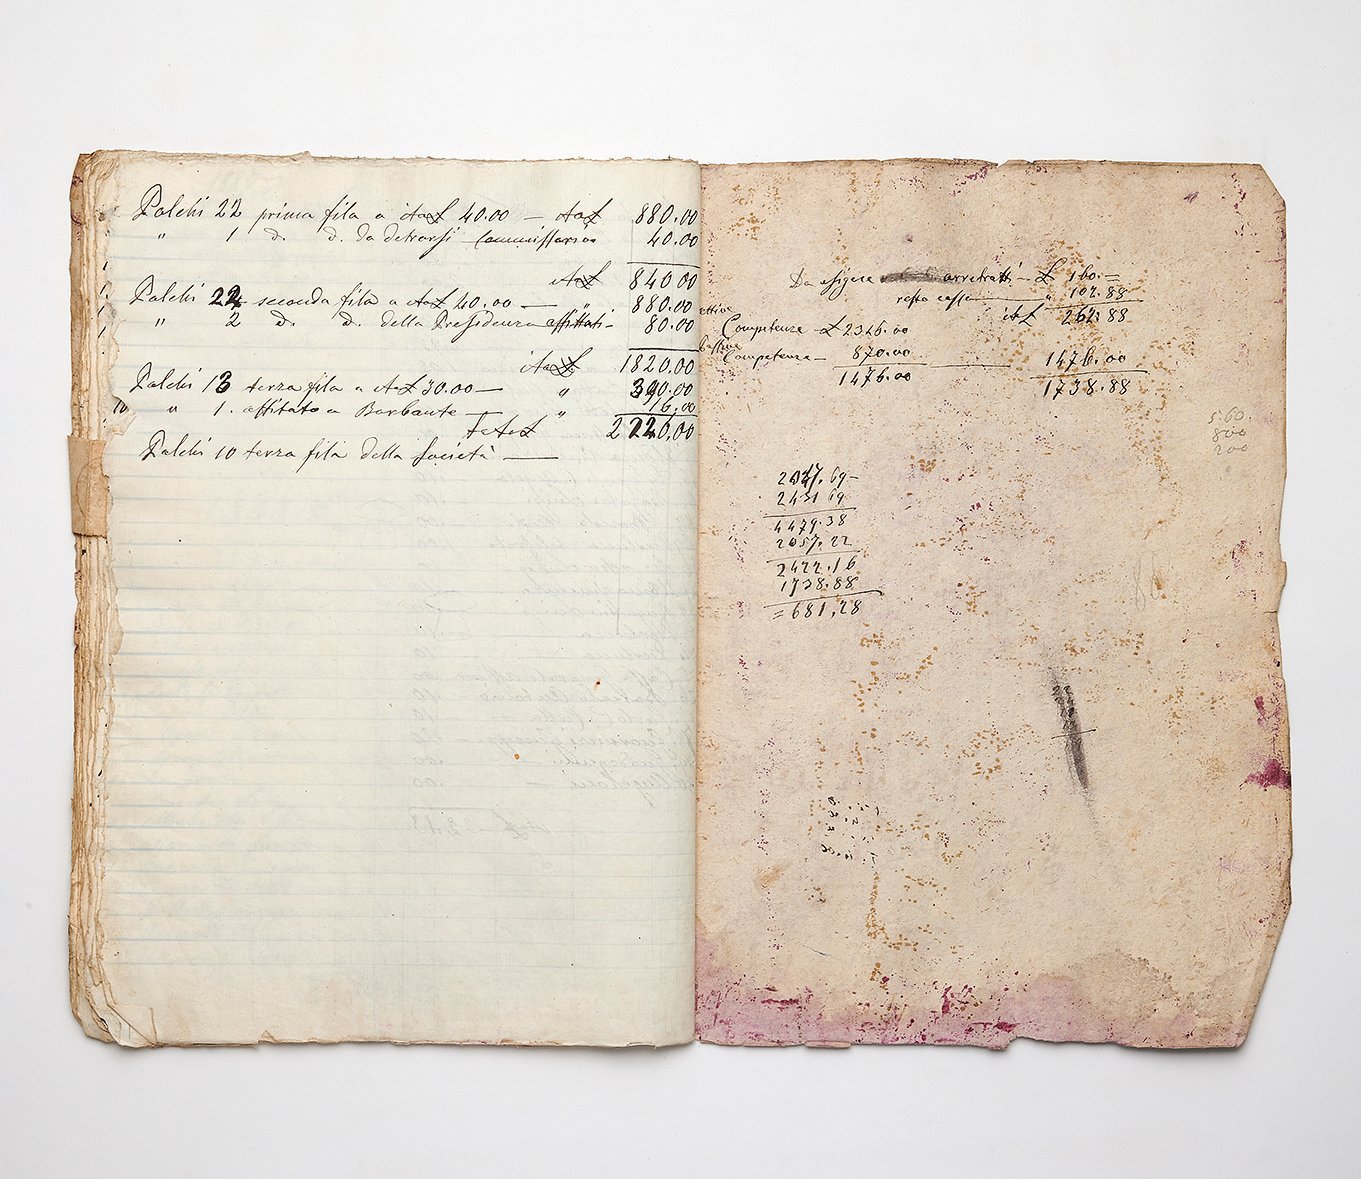 Palchi 22 prima fila a AaL 40.00 — AaL 880.00
" 1 d. d. da detrarsi Commissario 40.00
AaL 840.00
Palchi 22 seconda fila a AaL 40.00 — " 880.00
" 2 d. d. della Presidenza affittati 80.00
AaL 1820.00
Palchi 13 terza fila a AL 30.00 — " 390.00
" 1. affittato a Barbante — " 16.00
AaL 2226.00
Palchi 10 terza fila della Società —
Da esigere arretratti — L 160.=
resto cassa — " 102.88
AL 262.88
Competenze — L 2346.00
Competenza — 870.00 1476.00
1476.00 1738.88
5.60
800
200
2047.69-
2431.69
4479.38
2057.22
2422.16
1738.88
=681,28